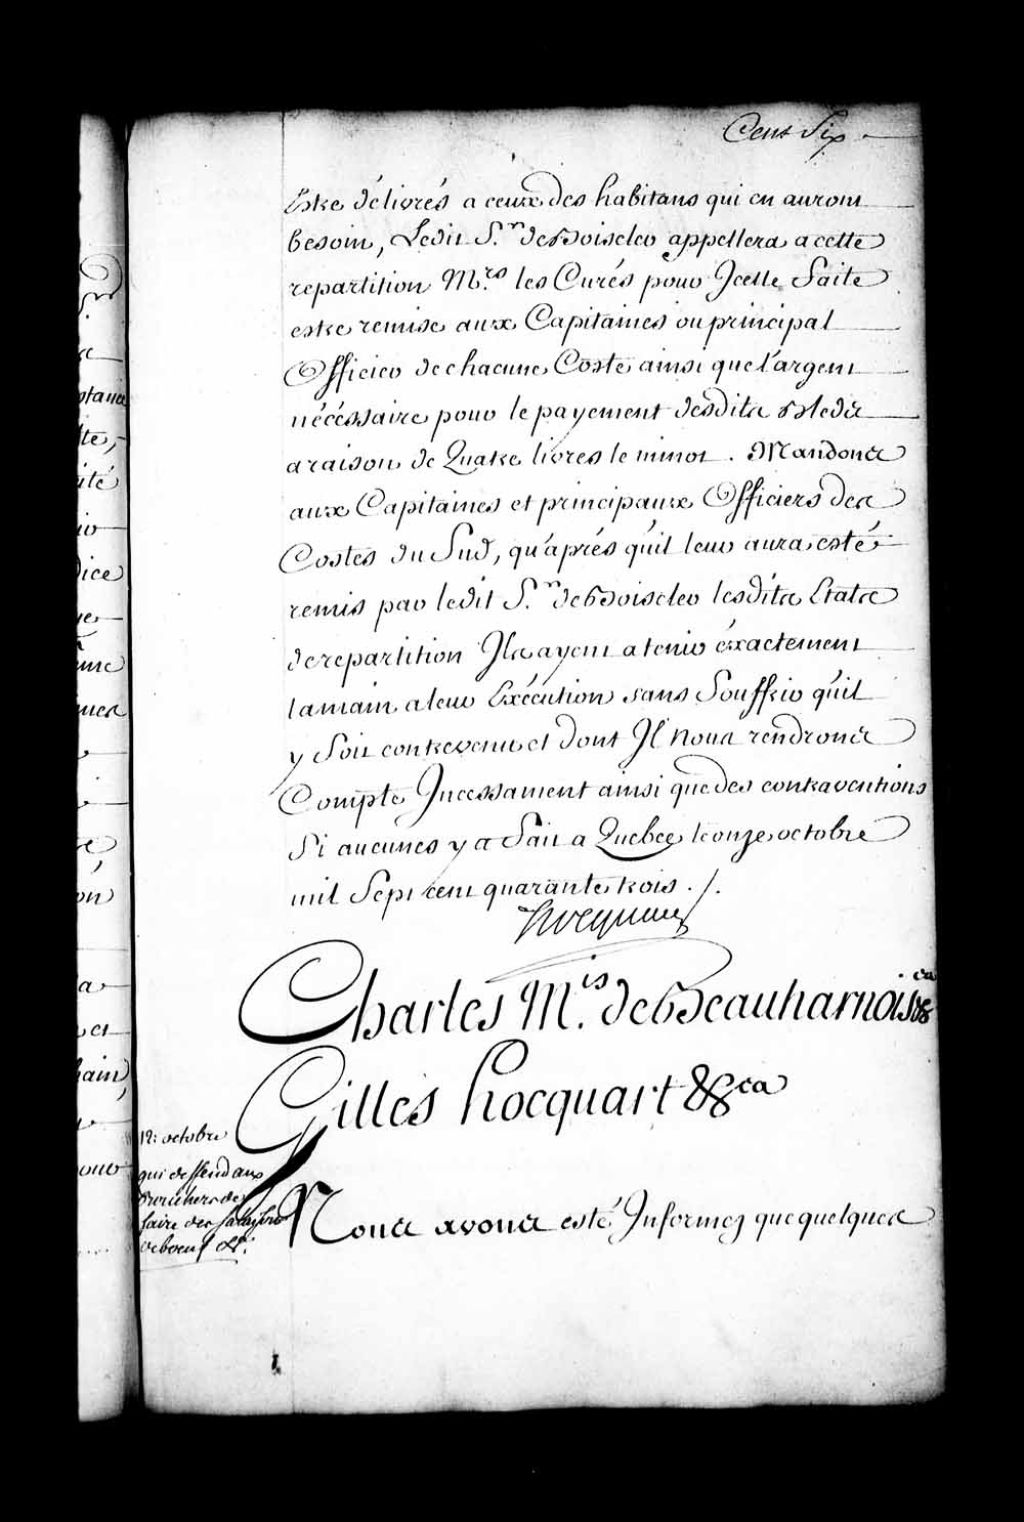 Cent Six
Estre délivrés a ceux des habitans qui en auront
besoin, Ledit S.r de Boiscler appellera a cette
repartition M.rs les Curés pour Jcelle faite
estre remise aux Capitaines ou principal
Officier de chacune Coste ainsi que l'argent
nécéssaire pour le payement desdits bleds
a raison de Quatre livres le minot. Mandons
aux Capitaines et principaux Officiers des
Costes du Sud, qu'aprés qu'il leur aura esté
remis par ledit S.r de Boiscler lesdits Etats
de repartition Ils ayent a tenir éxactement
la main a leur Exécution sans Souffrir qu'il
y Soit contrevenu et dont Il Nous rendront
Compte Incessament ainsi que des contraventions
Si aucunes y a fait a Quebec le onze octobre
mil Sept cent quarante trois ./.
Hocquart
Charles M.is de Beauharnois &ca
Gilles hocquart &ca
12: octobre
qui deffend aux
Bouchers de
faire des
de boeuf &c.
Nous avons esté Informez que quelques